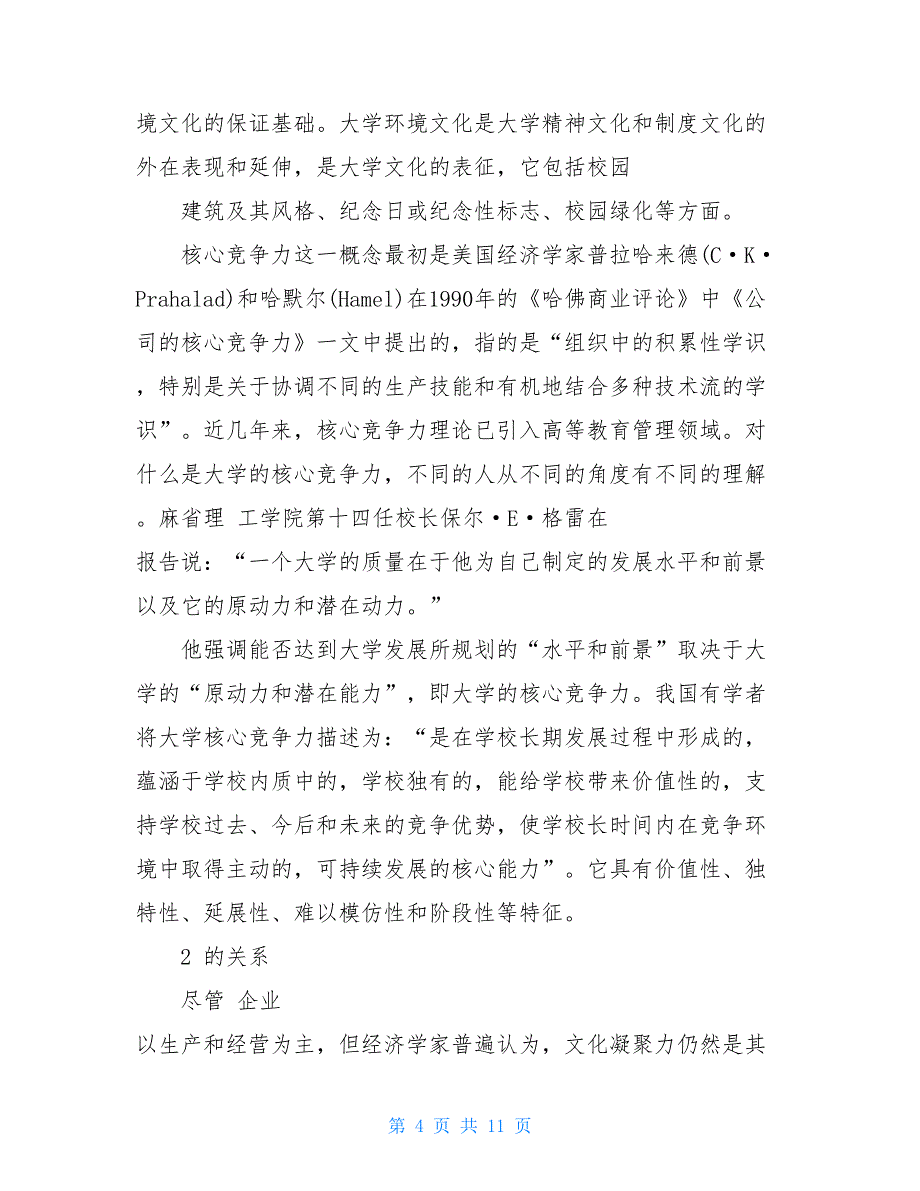 境文化的保证基础。大学环境文化是大学精神文化和制度文化的
外在表现和延伸，是大学文化的表征，它包括校园
建筑及其风格、纪念日或纪念性标志、校园绿化等方面。
核心竞争力这一概念最初是美国经济学家普拉哈来德(C·K·
Prahalad)和哈默尔(Hamel)在1990年的《哈佛商业评论》中《公
司的核心竞争力》一文中提出的，指的是“组织中的积累性学识
，特别是关于协调不同的生产技能和有机地结合多种技术流的学
识”。近几年来，核心竞争力理论已引入高等教育管理领域。对
什么是大学的核心竞争力，不同的人从不同的角度有不同的理解
。麻省理 工学院第十四任校长保尔·E·格雷在
报告说：“一个大学的质量在于他为自己制定的发展水平和前景
以及它的原动力和潜在动力。”
他强调能否达到大学发展所规划的“水平和前景”取决于大
学的“原动力和潜在能力”，即大学的核心竞争力。我国有学者
将大学核心竞争力描述为：“是在学校长期发展过程中形成的，
蕴涵于学校内质中的，学校独有的，能给学校带来价值性的，支
持学校过去、今后和未来的竞争优势，使学校长时间内在竞争环
境中取得主动的，可持续发展的核心能力”。它具有价值性、独
特性、延展性、难以模仿性和阶段性等特征。
2 的关系
尽管 企业
以生产和经营为主，但经济学家普遍认为，文化凝聚力仍然是其
第 4 页 共 11 页